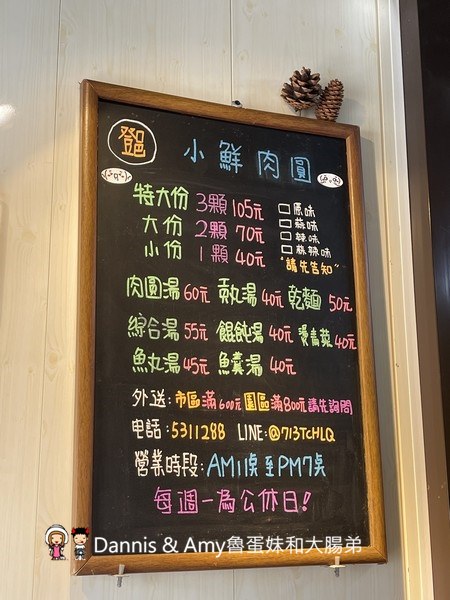 鄧
小鮮肉圓
特大份 3顆 105元 □原味
□蒜味
大份 2顆 70元 □辣味
□麻辣味
小份 1顆 40元 "請先告知"
肉圓湯60元 貢丸湯40元 乾麵50元
綜合湯55元 餛飩湯40元 燙青菜40元
魚丸湯45元 魚羹湯40元
外送:市區滿600元 園區滿800元 請先詢問
電話:5311288 LINE:@713TCHLQ
營業時段:AM11点至PM7点
每週一為公休日!
Dannis & Amy魯蛋妹和大腸弟